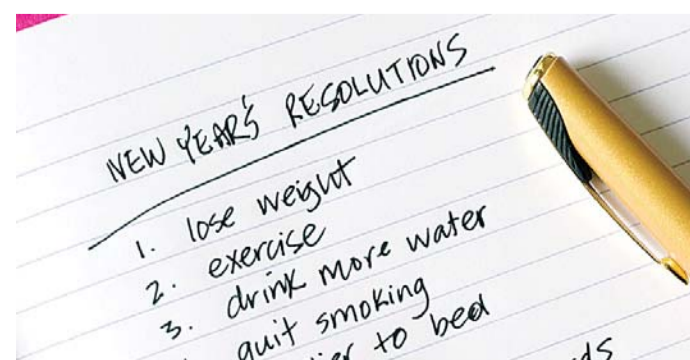 NEW YEAR'S RESOLUTIONS
1. lose weight
2. exercise
3. drink more water
quit smoking
to bed